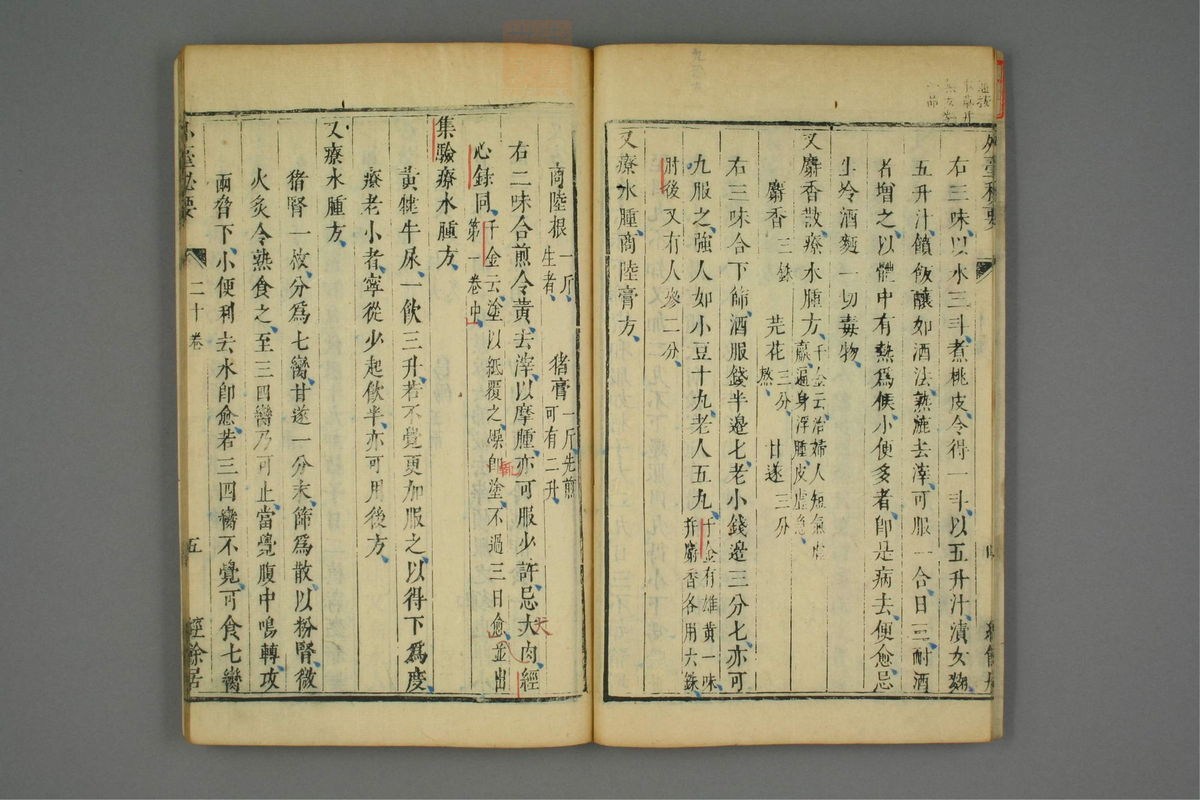 外臺秘要
右三味以水三斗煮桃皮令得一斗以五升汁漬女麴
五升汁饙飯釀如酒法熟漉去滓可服一合日三耐酒
者增之以體中有熱爲候小便多者即是病去便愈忌
生冷酒麵一切毒物
又麝香散療水腫方千金云治婦人短氣虛
羸遍身浮腫皮虛急
麝香三銖 芫花三分熬 甘遂三分
右三味合下篩酒服錢半邊匕老小錢邊三分匕亦可
丸服之強人如小豆十丸老人五丸千金有雄黃一味
并麝香各用六銖
肘後又有人參二分
又療水腫商陸膏方
商陸根一斤生者 猪膏一斤先煎可有二升
右二味合煎令黃去滓以摩腫亦可服少許忌犬肉經
犬
心錄同千金云塗以紙覆之燥即塗不過三日愈並出
第一卷中
輒
集驗療水腫方
黃犍牛尿一飲三升若不覺更加服之以得下爲度
療老小者寧從少起飲半亦可用後方
又療水腫方
猪腎一枚分爲七臠甘遂一分末篩爲散以粉腎微
火炙令熟食之至三四臠乃可止當覺腹中鳴轉攻
兩脅下小便利去水即愈若三四臠不覺可食七臠
外臺秘要
二十卷
五
經餘居